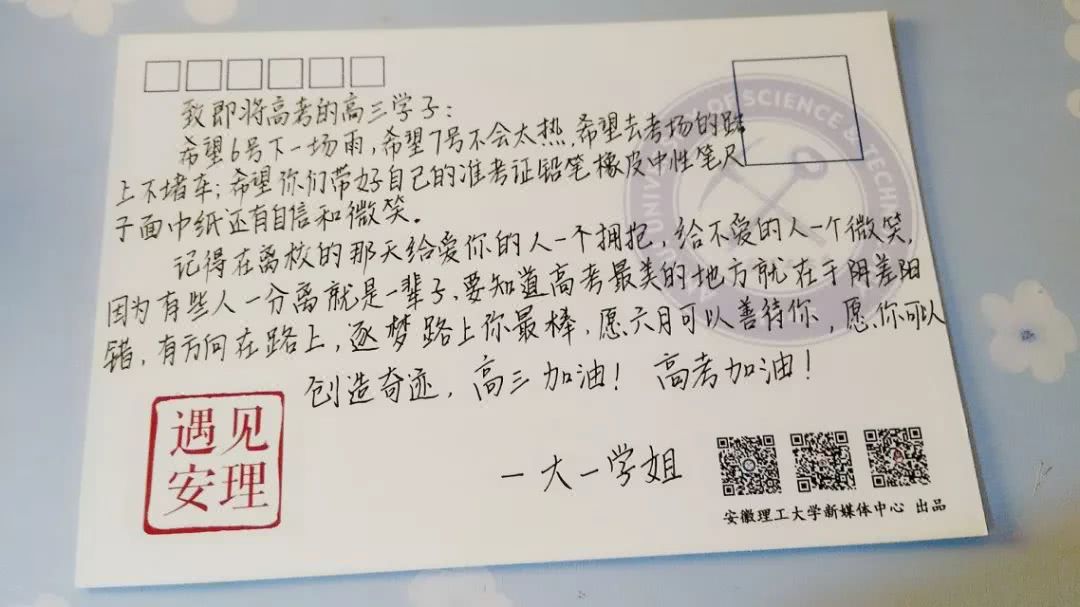 致即将高考的高三学子:
希望6号下一场雨,希望7号不会太热,希望去考场的路
上不堵车;希望你们带好自己的准考证铅笔橡皮中性笔尺
子面巾纸还有自信和微笑。
记得在离校的那天给爱你的人一个拥抱,给不爱的人一个微笑,
因为有些人一分离就是一辈子,要知道高考最美的地方就在于阴差阳
错,有方向在路上,逐梦路上你最棒,愿六月可以善待你,愿你可以
创造奇迹,高三加油!高考加油!
一大一学姐
遇见
安理
安徽理工大学新媒体中心 出品
UNIVERSITY OF SCIENCE & TECHN